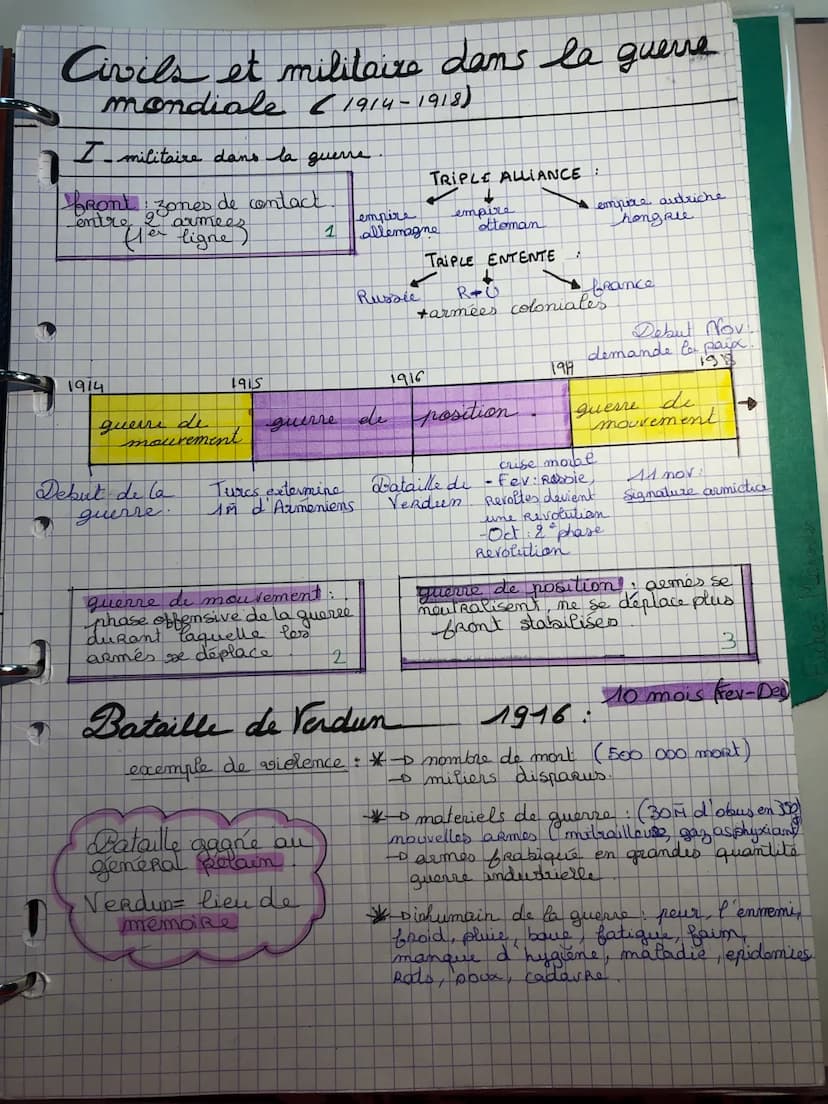 Civils et militaire dans la guerre
mondiale (1914-1918)
I - militaire dans la guerre.
front : zones de contact
entre 2 armées
(1er ligne)
1
TRIPLE ALLIANCE :
empire
allemagne
empire
ottoman
empire autriche
hongrie
TRIPLE ENTENTE :
Russie
R-U
france
+armées coloniales
Debut Nov:
demande la paix
1914
1915
1916
1917
1918
guerre de
mouvement
guerre de position.
guerre de
mouvement
Debut de la
guerre.
Turcs extermine
1M d'Armeniens
Bataille de
Verdun
crise moral
- Fev: Russie,
Revoltes devient
une Revolution
-Oct : 2e phase
Revolution
11 nov:
signature armictice
guerre de mouvement :
phase offensive de la guerre
durant laquelle les
armés se déplace
2
guerre de position : armés se
neutralisent, ne se déplace plus
front stabilisés
3
Bataille de Verdun 1916 :
10 mois (Fev-Dec)
exemple de violence : * → nombre de mort (500 000 mort)
→ miliers disparus.
* → materiels de guerre : (30M d'obus en 300j
nouvelles armes (mitrailleuse, gaz asphyxiant)
→ armes frabiqué en grandes quantité
guerre industrielle
* → inhumain de la guerre : peur, l'ennemi,
froid, pluie, boue, fatigue, faim,
manque d'hygiène, maladie, epidemies
Rats, poux, cadavre.
Bataille gagné au
général Petain
Verdun = lieu de
mémoire